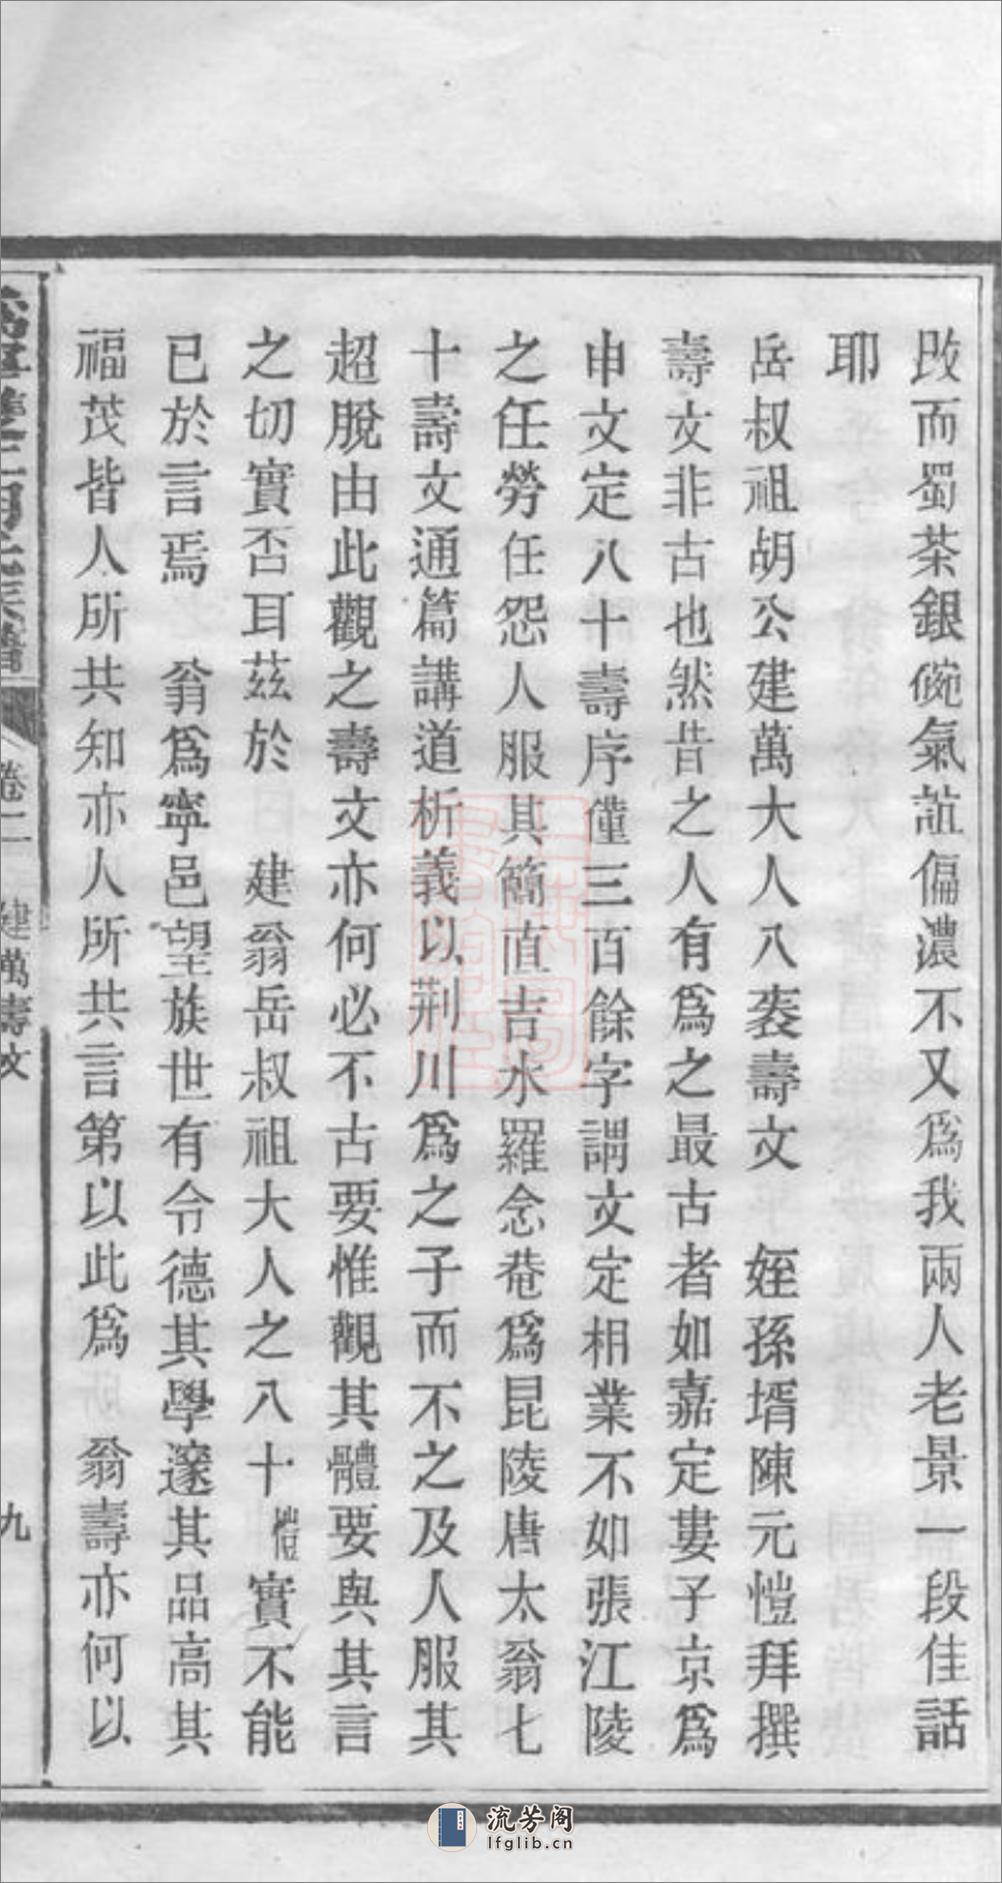 改而蜀茶銀碗氣誼偏濃不又爲我兩人老景一段佳話
耶
岳叔祖胡公建萬大人八袠壽文　姪孫壻陳元愷拜撰
壽文非古也然昔之人有爲之最古者如嘉定婁子京爲
申文定八十壽序僅三百餘字謂文定相業不如張江陵
之任勞任怨人服其簡直吉水羅念菴爲昆陵唐太翁七
十壽文通篇講道析義以荆川爲之子而不之及人服其
超脫由此觀之壽文亦何必不古要惟觀其體要與其言
之切實否耳茲於　建翁岳叔祖大人之八十愷實不能
已於言焉　翁爲寧邑望族世有令德其學邃其品高其
福茂皆人所共知亦人所共言第以此爲　翁壽亦何以
卷二　建萬壽文　九
流芳阁
lfglib.cn